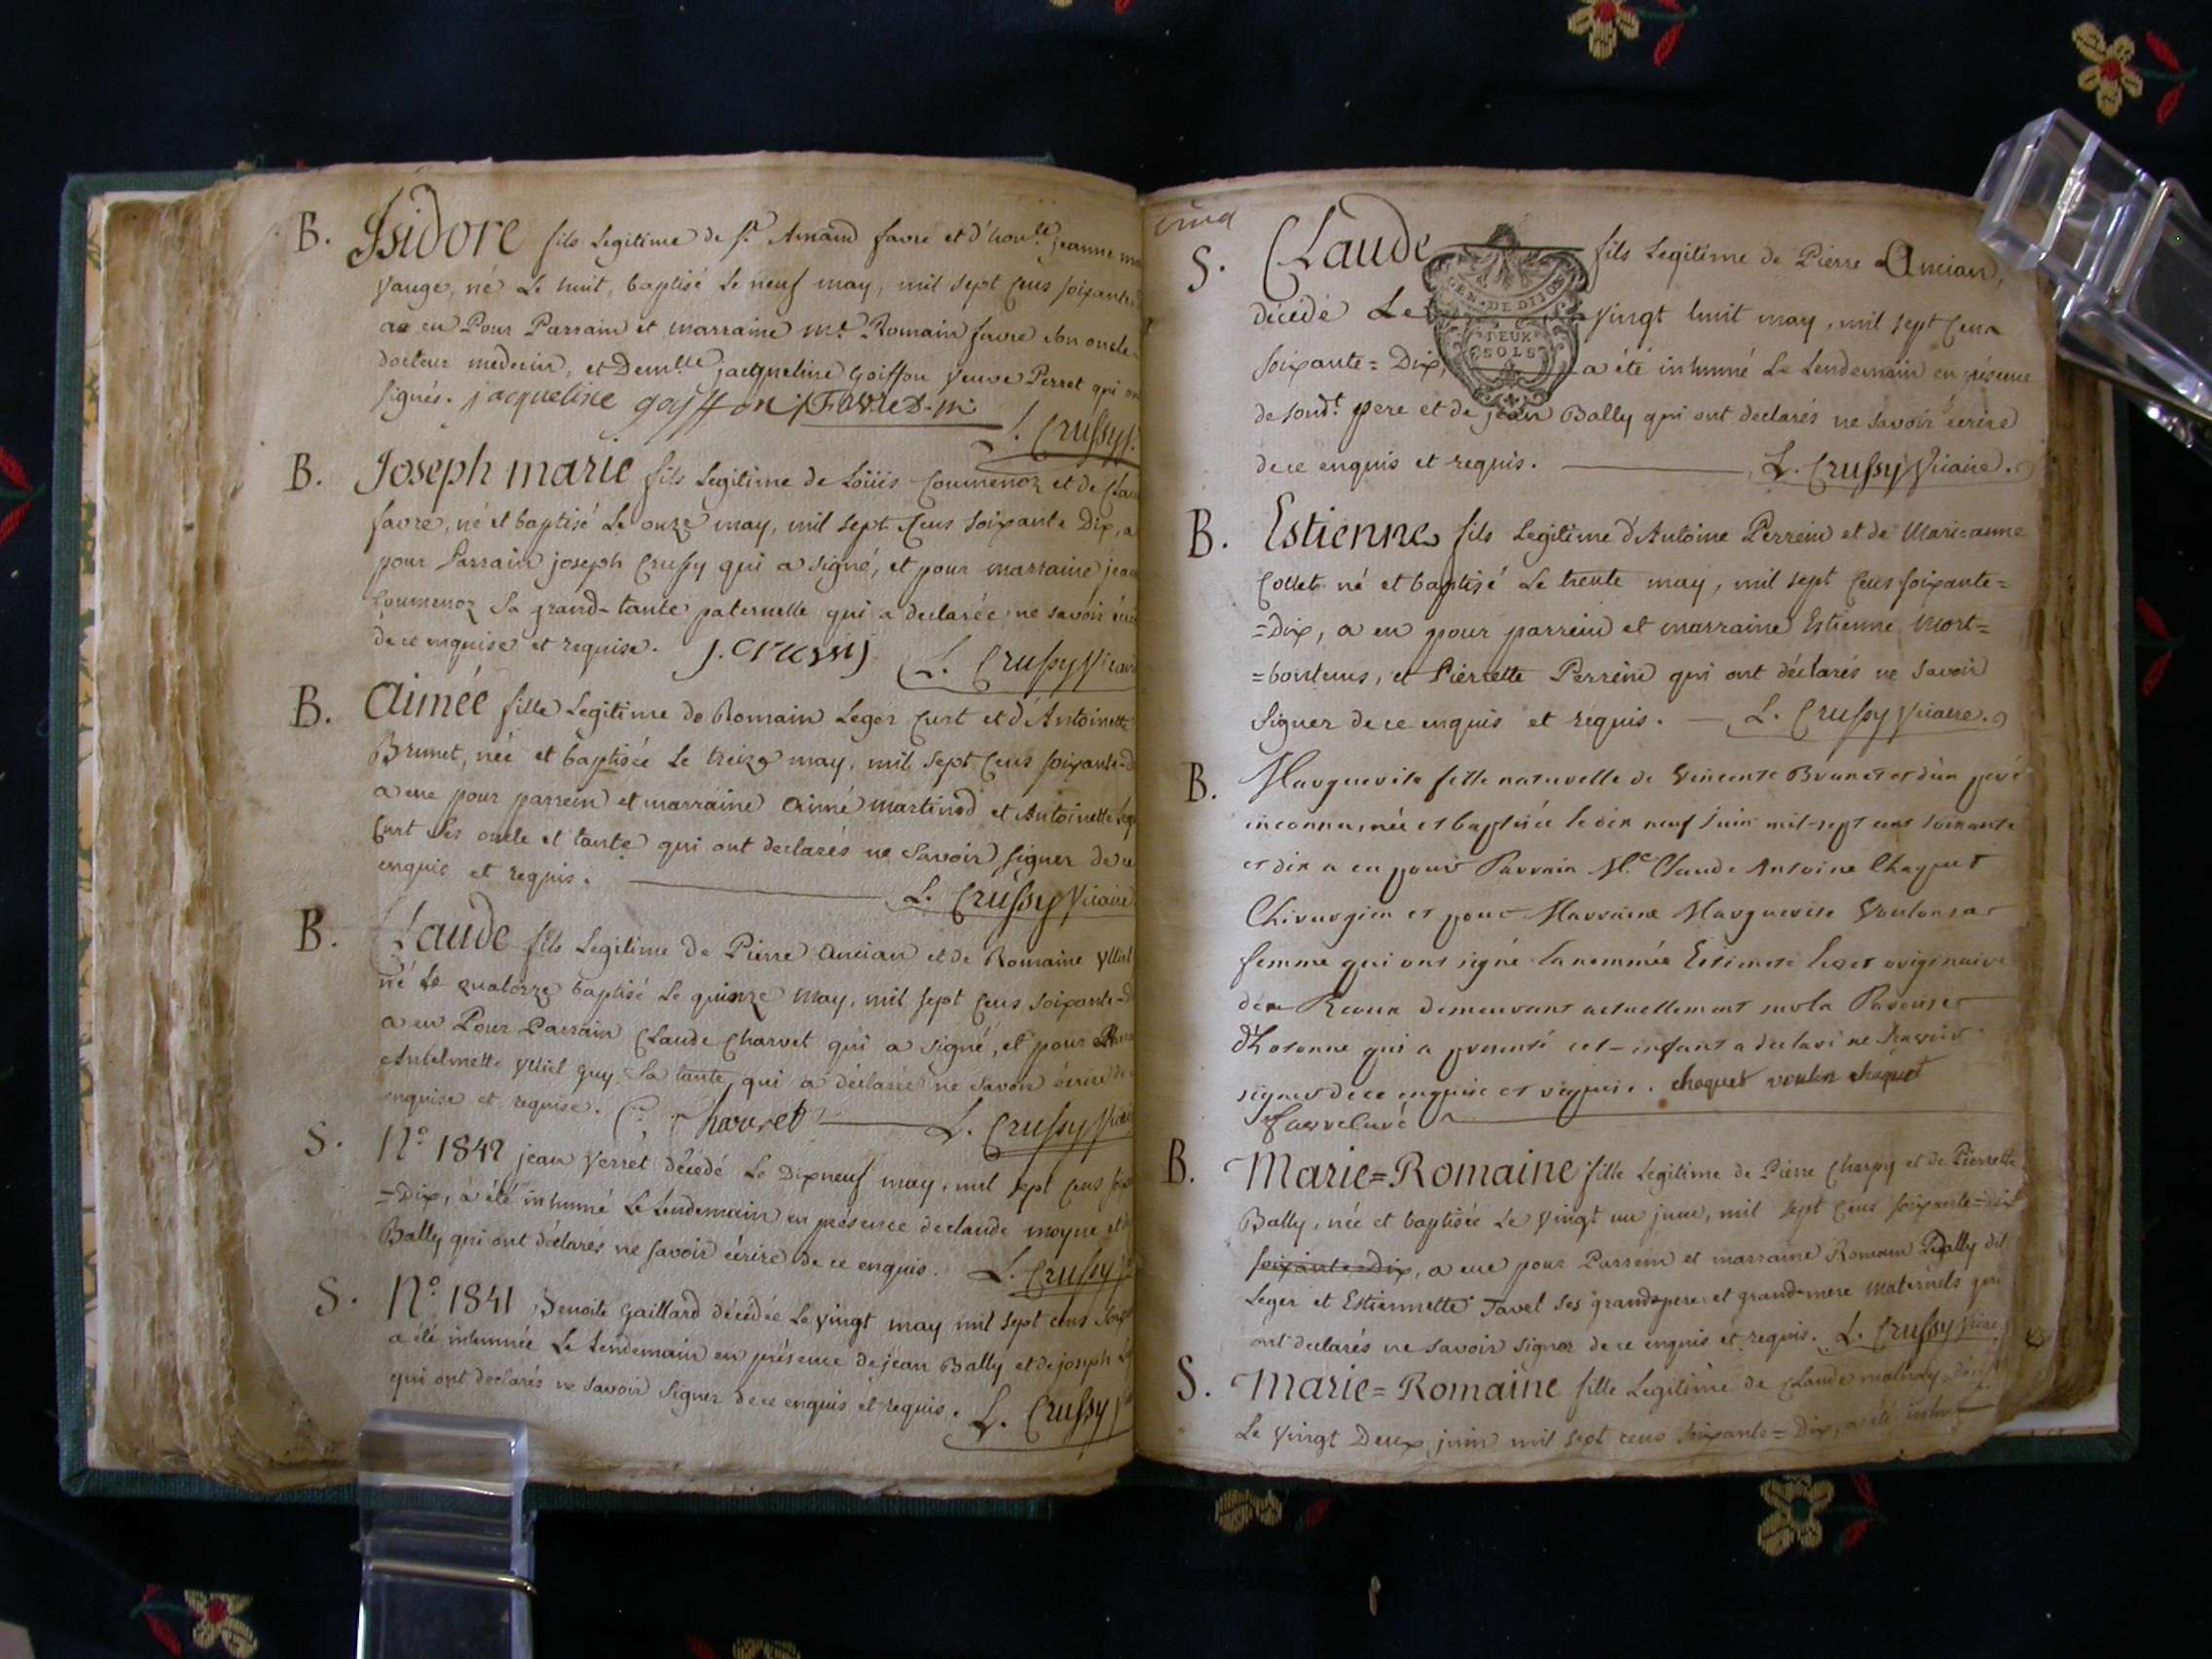 B. Isidore fils Legitime de Sr. Amand favre et d'honle. jeanne
Vauge, né Le huit, baptisé Le neuf may, mil sept Cens soixante
a eu Pour Parrain et marraine Mr. Romain favre son oncle
docteur medecin, et Demlle jacqueline Goiffon Veuve Perret qui
signés. jacqueline goyffon Favre D. m.
L. Crussy
B. Joseph marie fils Legitime de Loüis Coumenoz et de
favre, né et baptisé Le onze may, mil sept Cens soixante Dix, a
pour Parrain joseph Crussy qui a signé, et pour marraine
Coumenoz Sa grand-tante paternelle qui a declarée ne savoir
de ce enquise et requise. J. Crussy L. Crussy Vicaire
B. Aimée fille Legitime de Romain Leger Curt et d'Antoinette
Brunet, née et baptisée Le treize may, mil sept Cens soixante
a eue pour parrein et marraine Aimé Martinod et Antoinette
Curt Ses oncle et tante qui ont declarés ne Savoir signer de ce
enquis et requis. L. Crussy Vicaire
B. Claude fils Legitime de Pierre Ancian et de Romaine
né Le quatorze baptisé Le quinze May, mil sept Cens soixante
a eu Pour Parrain Claude Charvet qui a signé, et pour
Antelmette guy Sa tante, qui a déclarée ne Savoir écrire
enquise et requise. Charvet L. Crussy
S. No. 1842 jean Verret décédé Le Dixneuf may, mil sept Cens
=Dix, a été inhumé Le Lendemain en présence de claude moyne et
Bally qui ont déclarés ne savoir écrire de ce enquis. L. Crussy
S. No. 1841 Benoite Gaillard décédée Le vingt may mil sept cens
a été inhumée Le Lendemain en présence de jean Bally et de joseph
qui ont declarés ne savoir Signer de ce enquis et requis. L. Crussy
S. Claude fils Legitime de Pierre Ancian,
GEN. DE DIJON
décédé Le Vingt huit may, mil sept Cens
DEUX SOLS
soixante=Dix, a été inhumé Le Lendemain en présence
de sondt. pere et de jean Bally qui ont declarés ne savoir écrire
de ce enquis et requis. L. Crussy Vicaire.
B. Estienne fils Legitime d'Antoine Perrein et de Marieanne
Collet né et baptisé Le trente may, mil sept Cens soixante=
=Dix, a eu pour parrein et marraine Estienne Mort=
=bontems, et Pierrette Perrein qui ont déclarés ne Savoir
Signer de ce enquis et requis. L. Crussy Vicaire.
B. Marguerite fille naturelle de Vincente Brunet et d'un peré
inconnu, née et baptisée le dix neuf Juin mil-sept cent soixante
et dix a eu pour Parrain Me. Claude Antoine Chaquet
Chirurgien et pour Marraine Marguerite
femme qui ont signé. la nommée Estienette originaire
demeurant actuellement sur la Paroisse
qui a presenté cet-enfant a declaré ne scavoir
signer de ce enquise et requise. chaquet
B. Marie=Romaine fille Legitime de Pierre Charpy et de Pierrette
Bally, née et baptisée Le Vingt un juin, mil sept Cens soixante=dix
soixante=Dix, a eue pour Parrein et marraine Romain Bally dit
Leger et Estiennette Tavel Ses grand=pere et grand=mere maternels qui
ont declarés ne savoir signer de ce enquis et requis. L. Crussy Vicaire
S. Marie=Romaine fille Legitime de Claude
Le Vingt Deux juin mil sept cens soixante=Dix, a été